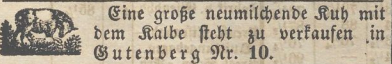 Eine große neumilchende Kuh mit
dem Kalbe steht zu verkaufen in
Gutenberg Nr. 10.